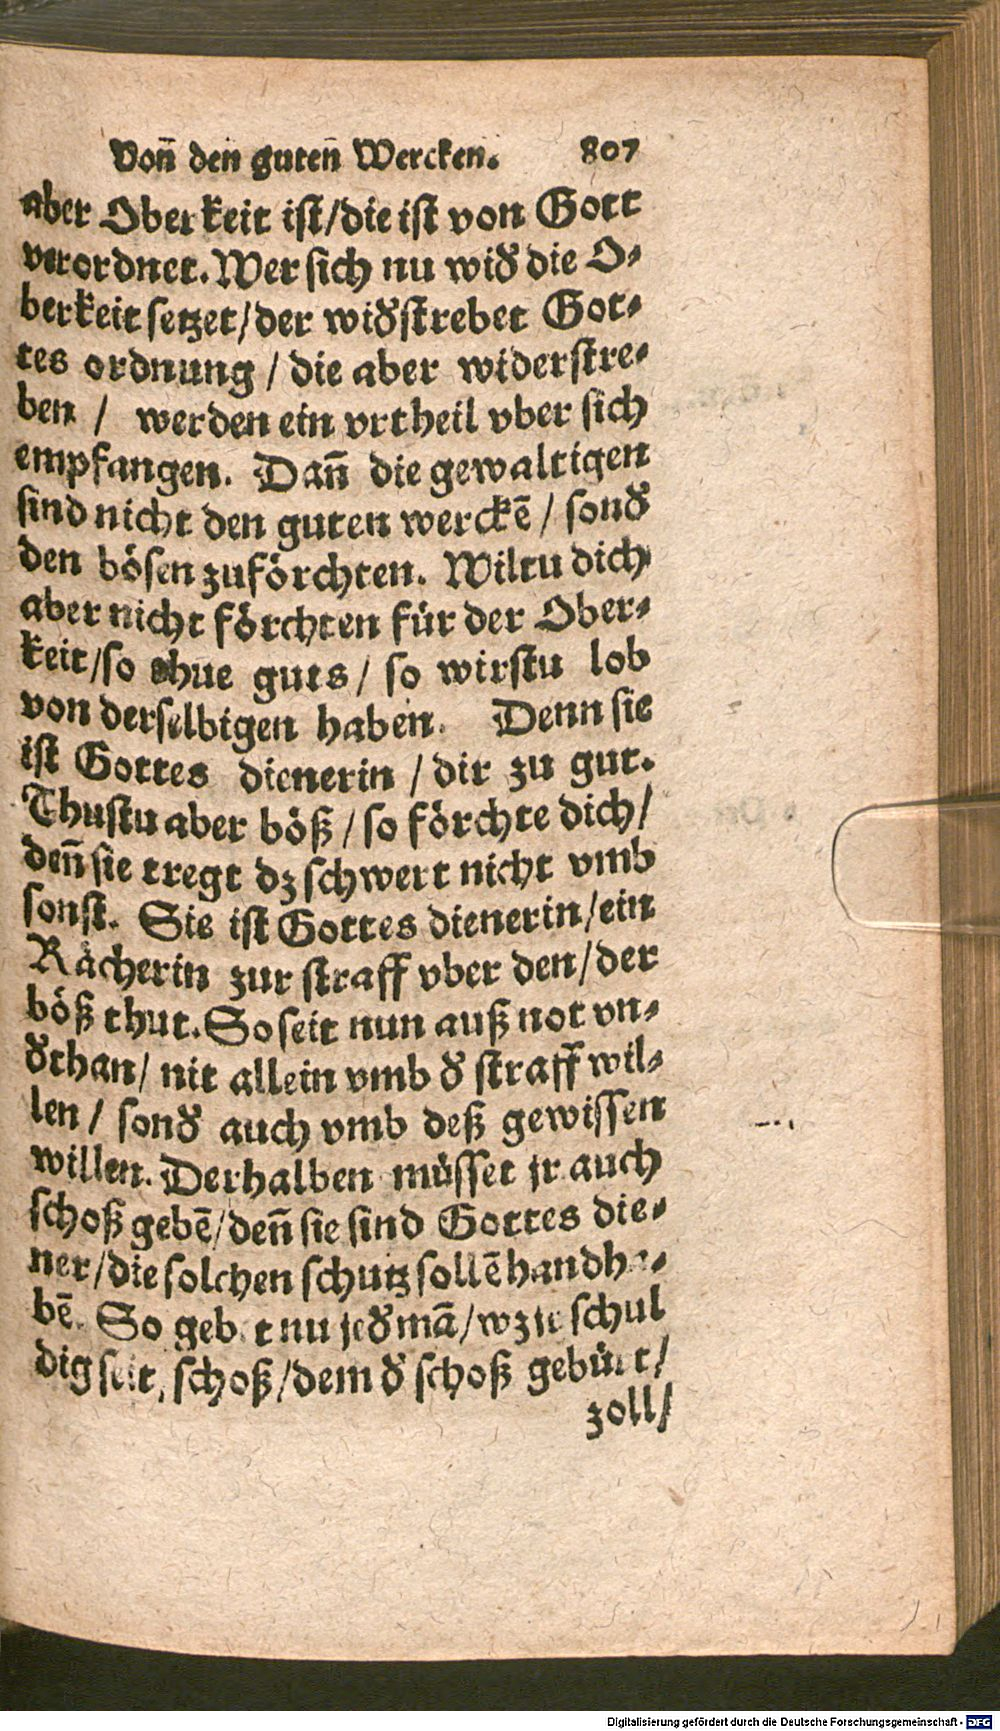 Von̄ den guten̄ Wercken. 807
aber Oberkeit ist/die ist von Gott
verordnet. Wer sich nu wid᷑ die O-
berkeit setzet/der wid᷑strebet Got-
tes ordnung / die aber widerstre-
ben / werden ein vrtheil vber sich
empfangen. Dan̄ die gewaltigen
sind nicht den guten werckē / sond᷑
den bösen zuförchten. Wiltu dich
aber nicht förchten für der Ober-
keit/so thue guts/ so wirstu lob
von derselbigen haben. Denn sie
ist Gottes dienerin / dir zu gut.
Thustu aber böß / so förchte dich/
den̄ sie tregt dz schwert nicht vmb
sonst. Sie ist Gottes dienerin/ein
Rächerin zur straff vber den/der
böß thut. So seit nun auß not vn-
d᷑than/ nit allein vmb d᷑ straff wil-
len / sond᷑ auch vmb deß gewissen
willen. Derhalben müsset jr auch
schoß gebē/den̄ sie sind Gottes die-
ner/die solchen schutz sollē handha-
bē. So gebet nu jed᷑mā/wz jr schul
dig seit, schoß/dem d᷑ schoß gebürt/
zoll/
Digitalisierung gefördert durch die Deutsche Forschungsgemeinschaft - DFG